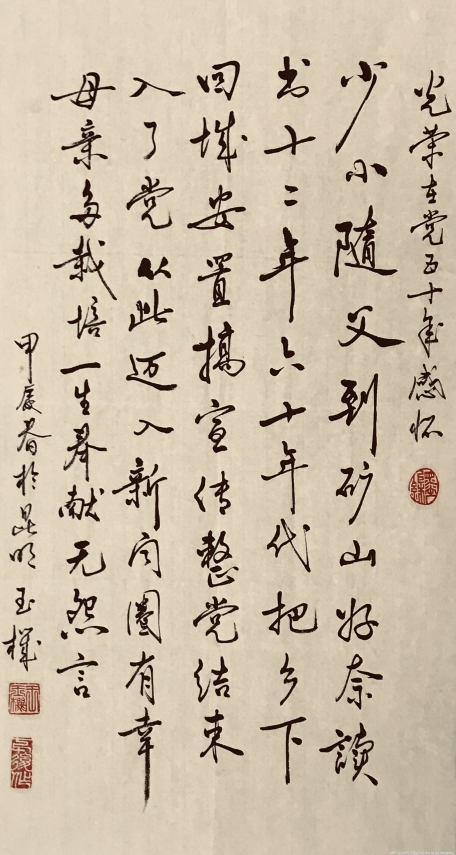 光荣在党五十年感怀
少小隨父到矿山好奈讀
书十二年六十年代把乡下
回城安置搞宣传整党结束
入了党从此迈入新闻圈有幸
母亲多栽培一生奉献无怨言
甲辰春於昆明玉